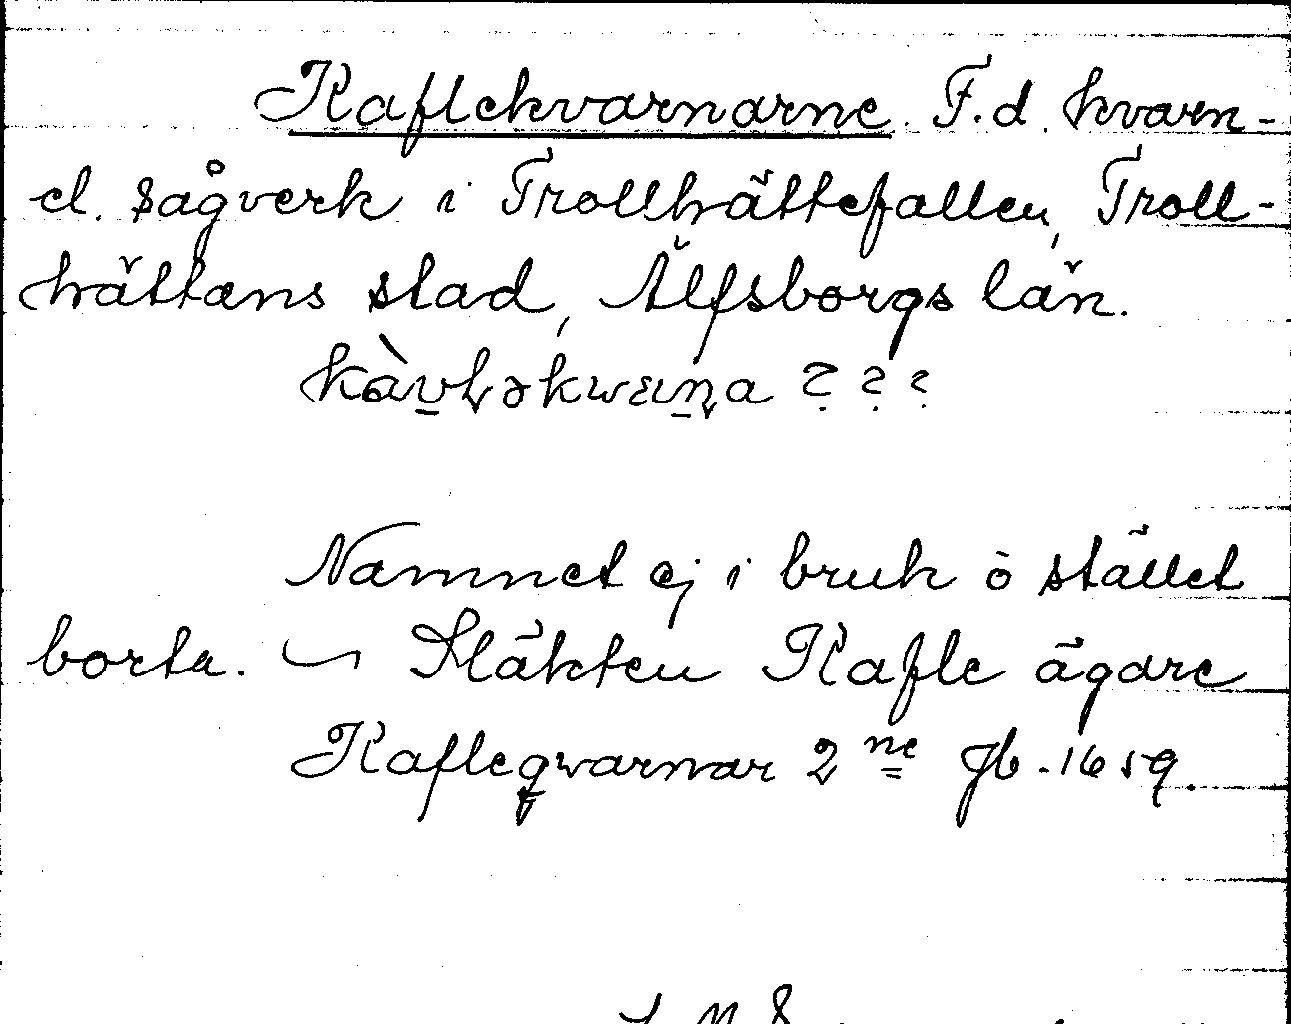 Kaflekvarnarne. F.d. kvarn-
el. sågverk i Trollhättefallen, Troll-
hättans stad, Älfsborgs län.
??? 
Namnet ej i bruk o stället
borta. Släkten Kafle ägare
Kafleqvarnar 2ne Jb. 1659.